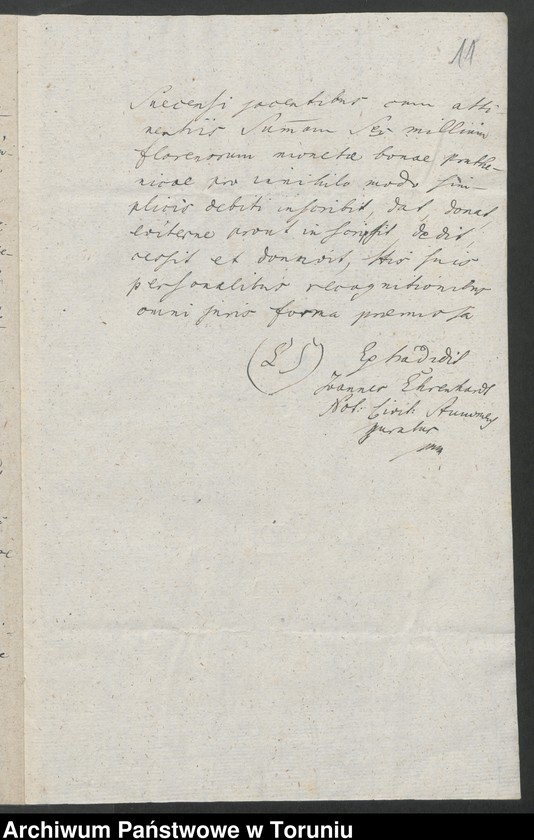 11
Suecensi jacentibus cum atti-
nentiis Sum̄am Sex millium
florenorum monetæ bonae pruthe-
nicae pro
plicis debiti inscribit, dat, donat,
prout inscripsit, dedit,
cessit et donavit, His suis
personalibus recognitionibus
omni juris forma præmissa
(L S) Extradidit
Joannes Ehrenhardt
Not: Civit:
juratus
mp
Archiwum Państwowe w Toruniu